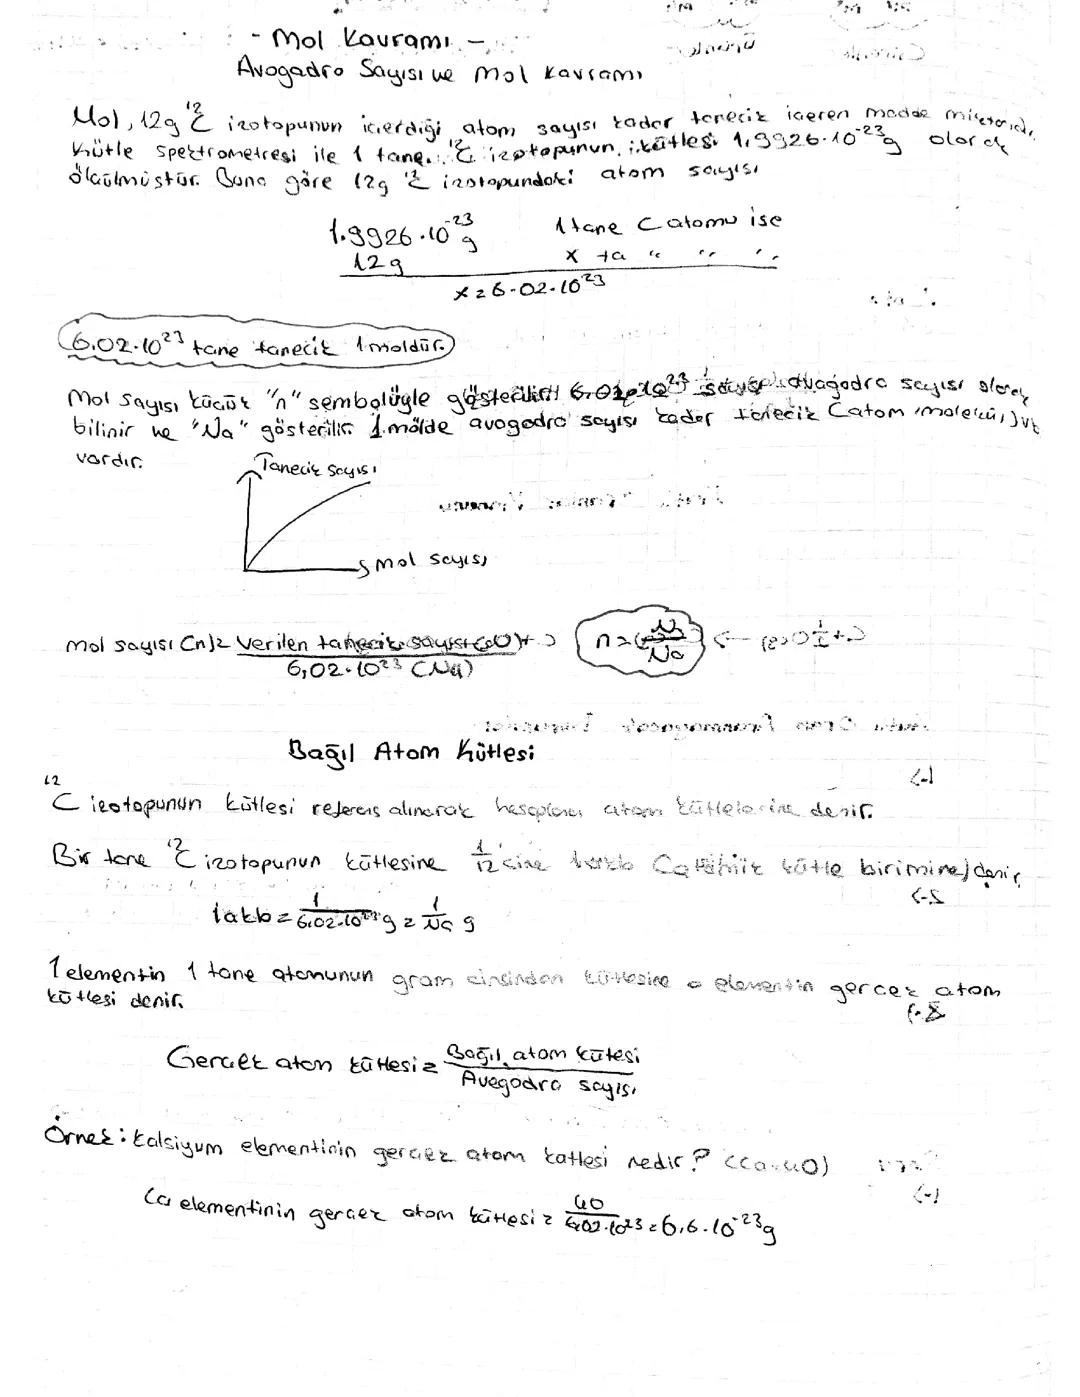 - Mol Kavramı -
Avogadro Sayısı ve Mol Kavramı
Mol, 12g ¹²C izotopunun içerdiği atom sayısı kadar tanecik içeren madde miktarıdır.
Kütle spektrometresi ile 1 tane ¹²C izotopunun kütlesi 1,9926.10⁻²³g olarak
ölçülmüştür. Buna göre 12g ¹²C izotopundaki atom sayısı
1.9926.10⁻²³g 1 tane C atomu ise
12g x ta " " "
x = 6.02.10²³
6.02.10²³ tane tanecik 1 moldür.
Mol sayısı küçük "n" sembolüyle gösterilir. 6.02.10²³ sayısı avagadro sayısı olarak
bilinir ve "Na" gösterilir. 1 molde avogadro sayısı kadar tanecik (atom, molekül) vb
vardır.
Tanecik sayısı
mol sayısı
mol sayısı (n) = verilen tanecik sayısı (N)
6,02.10²³ (Na)
n = N
Na
Bağıl Atom Kütlesi
¹²C izotopunun kütlesi referans alınarak hesaplanan atom kütlelerine denir.
Bir tane ¹²C izotopunun kütlesine 1/12'sine 1akb (atomik kütle birimine) denir.
1akb = 1/6,02.10²³ g = 1/Na g
1 elementin 1 tane atomunun gram cinsinden kütlesine o elementin gerçek atom
kütlesi denir.
Gerçek atom kütlesi = Bağıl atom kütesi
Avegadro sayısı
Örnek: Kalsiyum elementinin gerçek atom kütlesi nedir? (Ca:40)
Ca elementinin gerçek atom kütlesi = 40/6,02.10²³ = 6,6.10⁻²³g